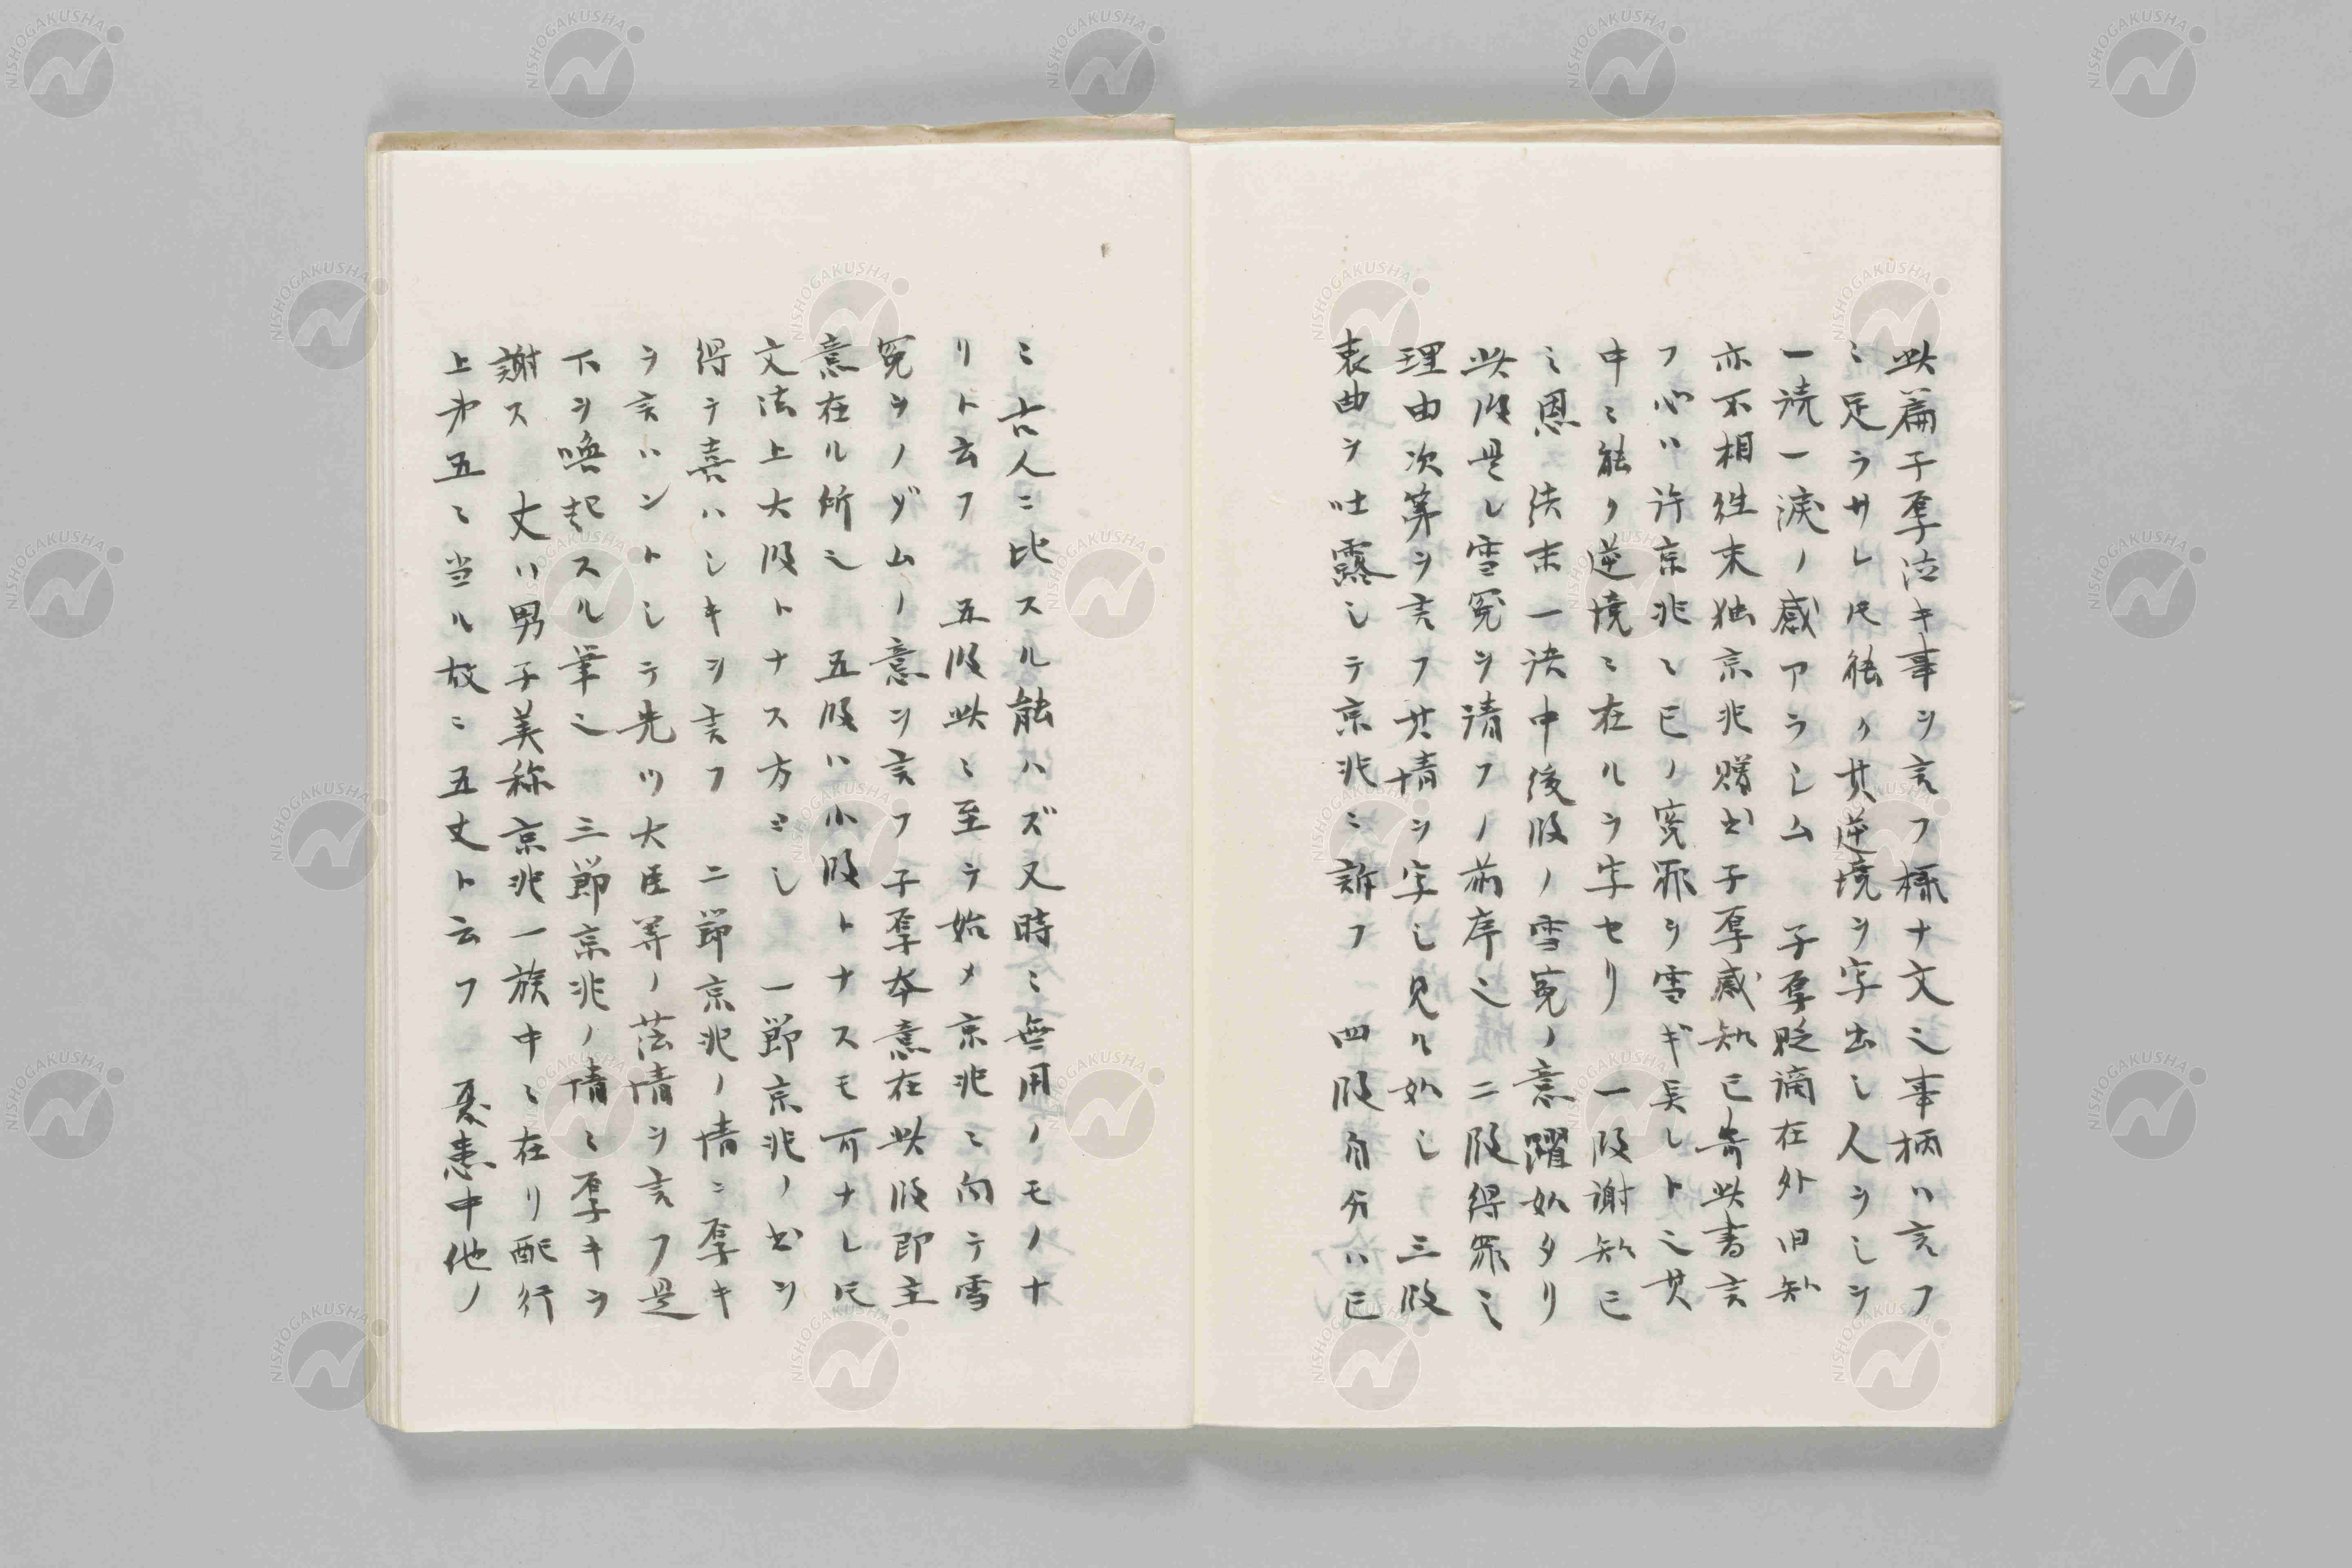 此篇子厚泣キ事ヲ言フ様ナ文ニ事柄ハ言フ
ニ足ラサレ𪜈能ク其逆境ヲ写出シ人ヲシテ
一読一涙ノ感アラシム 子厚貶謫在外旧知
亦不相往来独京兆贈書子厚感知已寄此書言
フ心ハ許京兆ニ已ノ寃罪ヲ雪ギ呉レトニ其
中ニ能ク逆境ニ在ルヲ写セリ 一段謝知已
ニ恩 結末一決中後段ノ雪寃ノ意躍如タリ
此段是レ雪寃ヲ請フノ前序ニ 二段得罪ニ
理由次第ヲ言フ其情ヲ写シ見ル如シ 三段
衷曲ヲ吐露シテ京兆ニ訴フ 四段自分ハ已
ニ古人ニ比スル能ハズ又時ニ無用ノモノナ
リト云フ 五段此ニ至ラ始メ京兆ニ向テ雪
寃ヲノゾムノ意ヲ言フ子厚本意在此段即主
意在ル所ニ 五段ハ小段トナスモ可ナレ𪜈
文法上大段トナス方ヨシ 一節京兆ノ書ヲ
得テ喜ハシキヲ言フ 二節京兆ノ情ニ厚キ
ヲ言ハントシテ先ツ大臣等ノ薄情ヲ言フ是
下ヲ喚起スル筆ニ 三節京兆ノ情ニ厚キヲ
謝ス 丈ハ男子美称京兆一族中ニ在リ配行
上第五ニ当ル故ニ五丈ト云フ 憂恚中他ノ